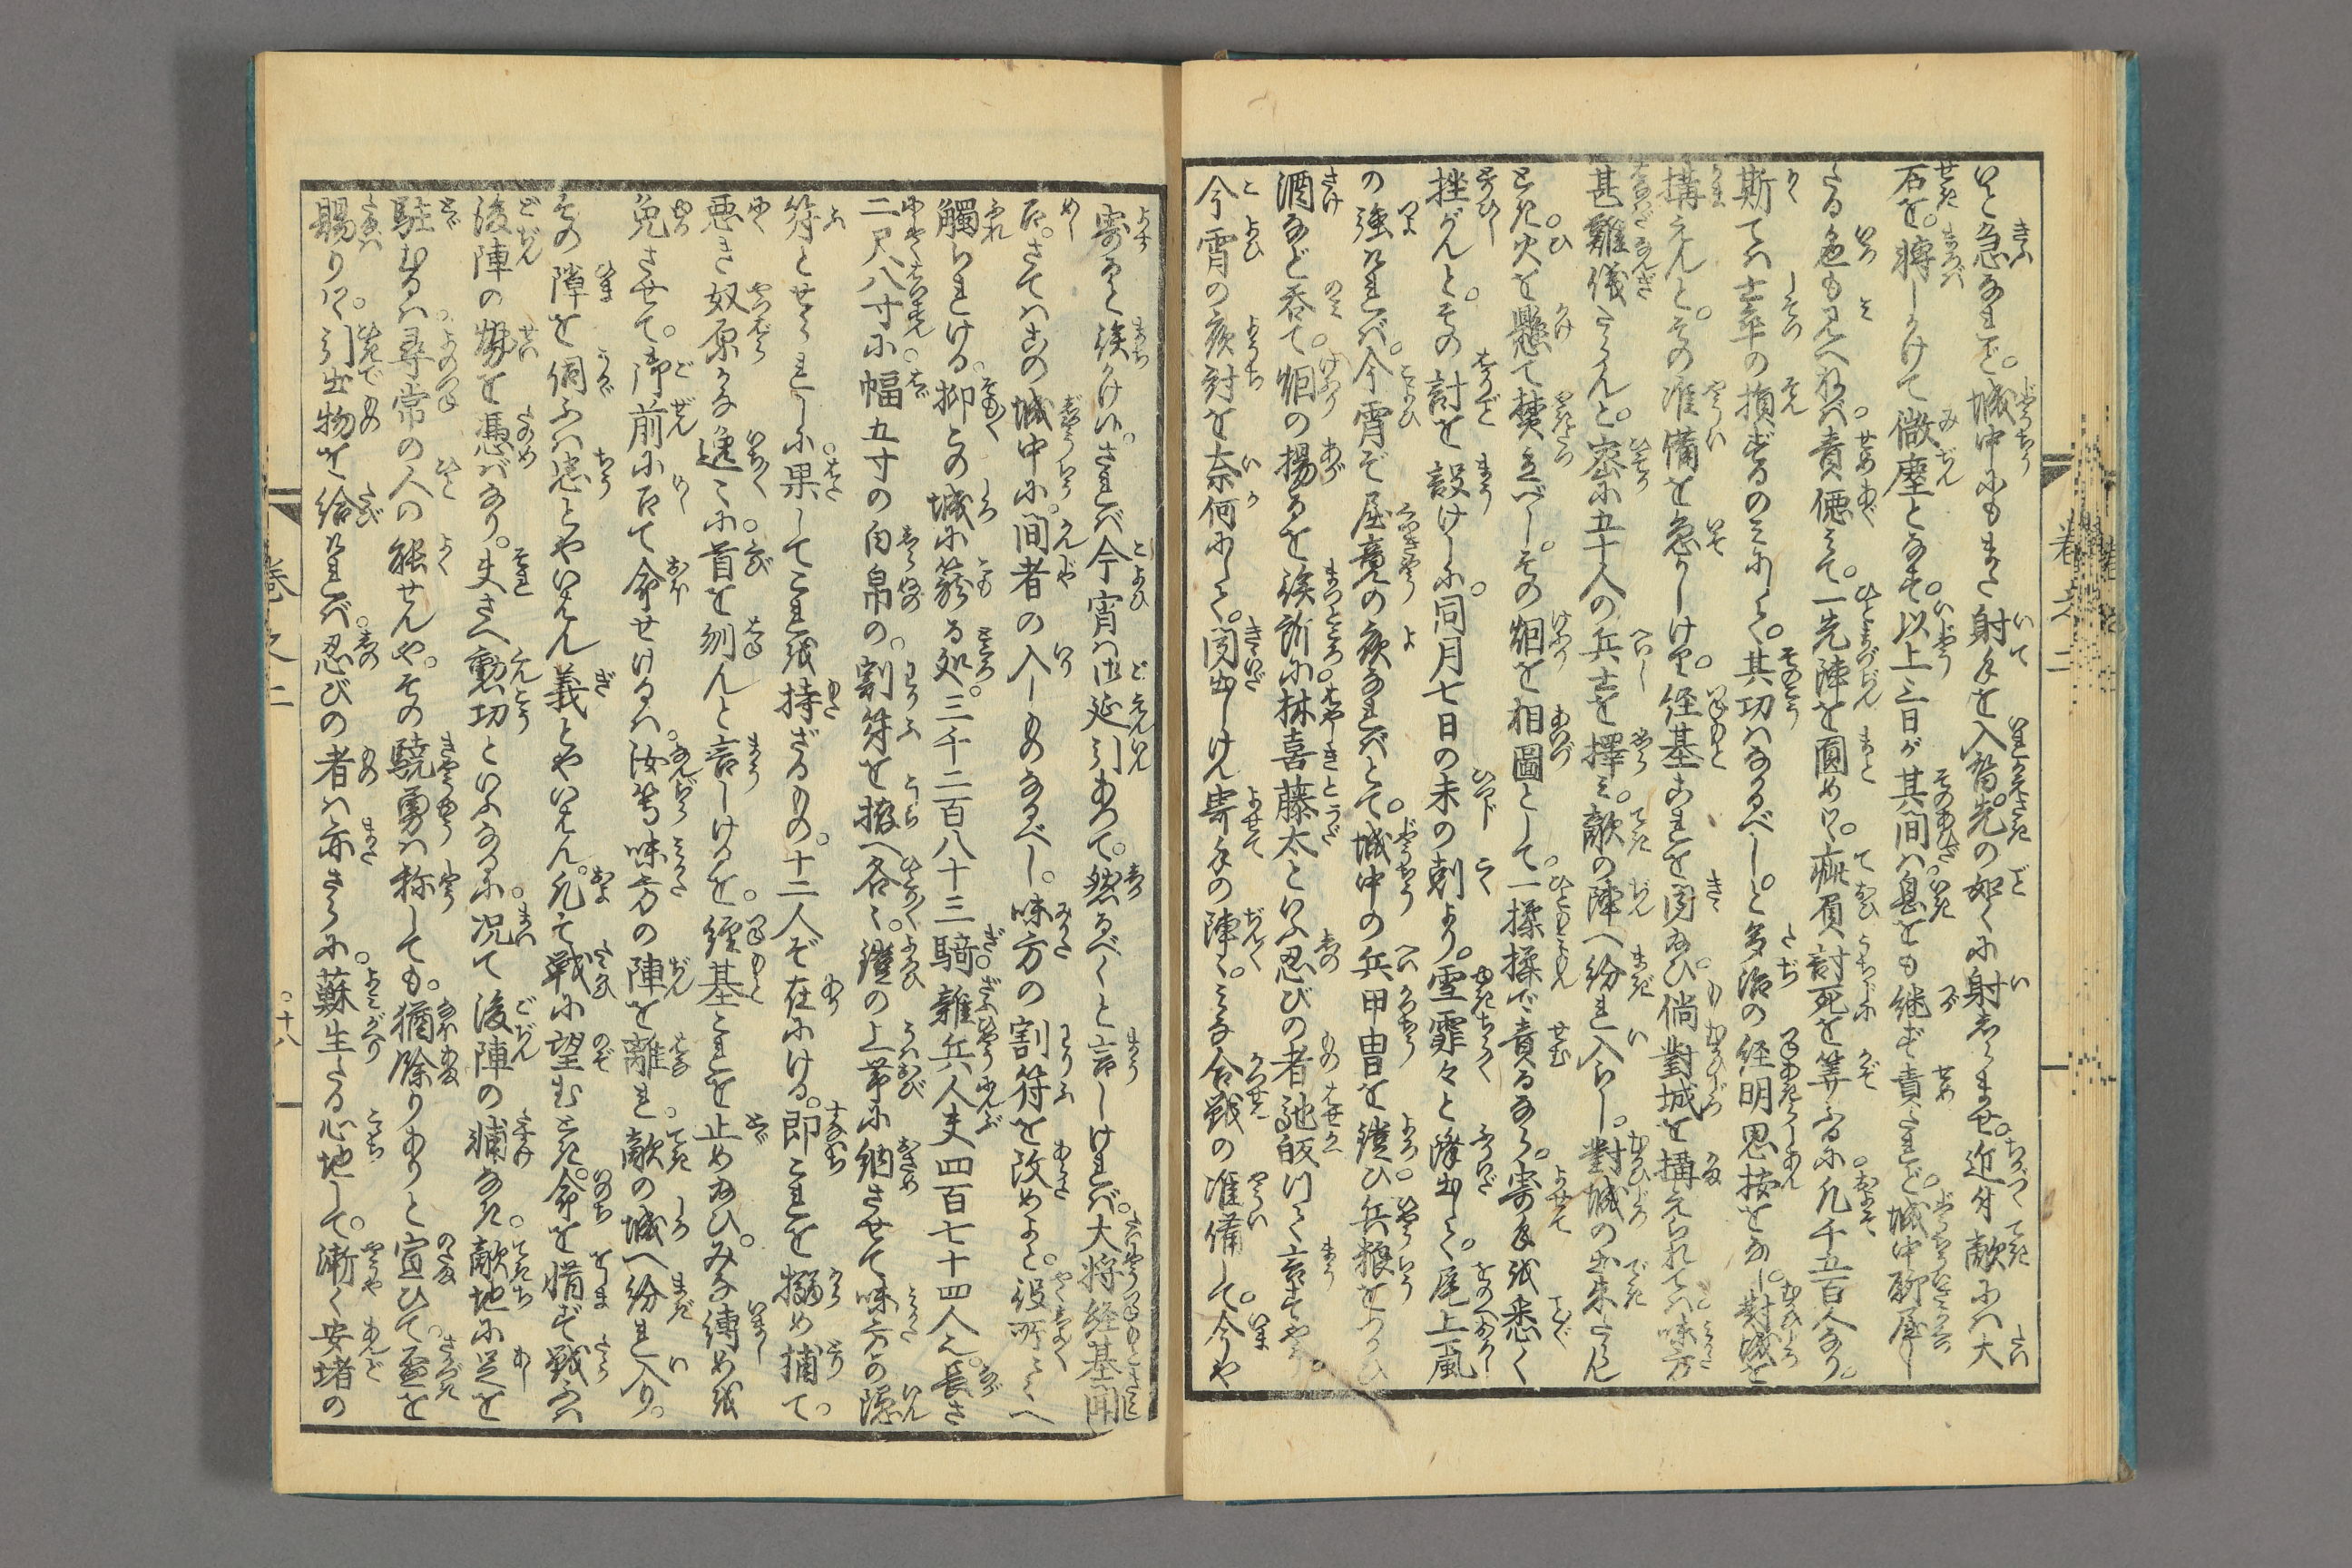 いと急なれど。城中にもまた射手を入替先の如くに射させ。近付敵には大
石を。轉しかけて微塵となす。以上三日が其間は。息をも継ず責たれど。城中聊屈し
たる色も見へねば。責倦みて。一先陣を圓め。疵負討死を算ふるに。凡千五百人なり。
斯ては士卒の損ずるのみにして。其功はなかるべし。と多治の経明思按をなし。對城を
搆えんと。その准備を急がしけり。経基これを聞給ひ。倘對城を搆えられては。味方
甚難儀たらんと。密に五十人の兵士を擇み。敵の陣へ紛れ入らし。對城の出来たらん
とき。火を懸て焚立べし。その烟を相圖として。一揉揉で責るなら。寄手を悉く
挫がんと。その計を設けしに。同月七日の未の刻より。雪霏々と降出して。尾上風
の強ければ。今宵ぞ屈竟の夜なればとて。城中の兵甲冑を鎧ひ兵粮をつかひ
酒など呑て。烟の揚るを俟所に。林喜藤太といふ忍びの者馳皈りて言すやう。
今宵の夜討を奈何にして。聞出しけん寄手の陣々。みな合戦の准備して。今や
寄ると俟かけり。されば今宵は御延引あつて。然るべくと言しければ。大将経基聞
召。さてはこの城中に。間者の入しものなるべし。味方の割符を改めよと。役所々々へ
觸られける。抑この城に篭る処。三千二百八十三騎雜兵人夫四百七十四人え。長さ
二尺八寸に幅五寸の白帛の。割符を拵へ各々。鎧の上帯に納させて味方の隠
符とせられしに。果してこれを持ざるもの。十二人ぞ在にける。即これを搦め捕て。
悪き奴原かな逸々に。首を刎んと言しけるを。経基これを止め給ひ。みな縛めを
免させて。御前に召て命せけるは。汝等味方の陣を離れ。敵の城へ紛れ入り。
その障を伺ふは忠とやいはん義とやいはん。凡そ戦に望むとき。命を惜まず戦ふは
後陣の勢を憑ばなり。夫さへ勲功といふなるに。况て後陣の補なき。敵地に足を
駐むるは。尋常の人の能せんや。その驍勇は称しても。猶餘りありと宣ひて。盃を
賜りけり。引出物を給ければ。忍びの者は亦さらに。蘇生たる心地して。漸く安堵の
巻之二
巻之二
○十八